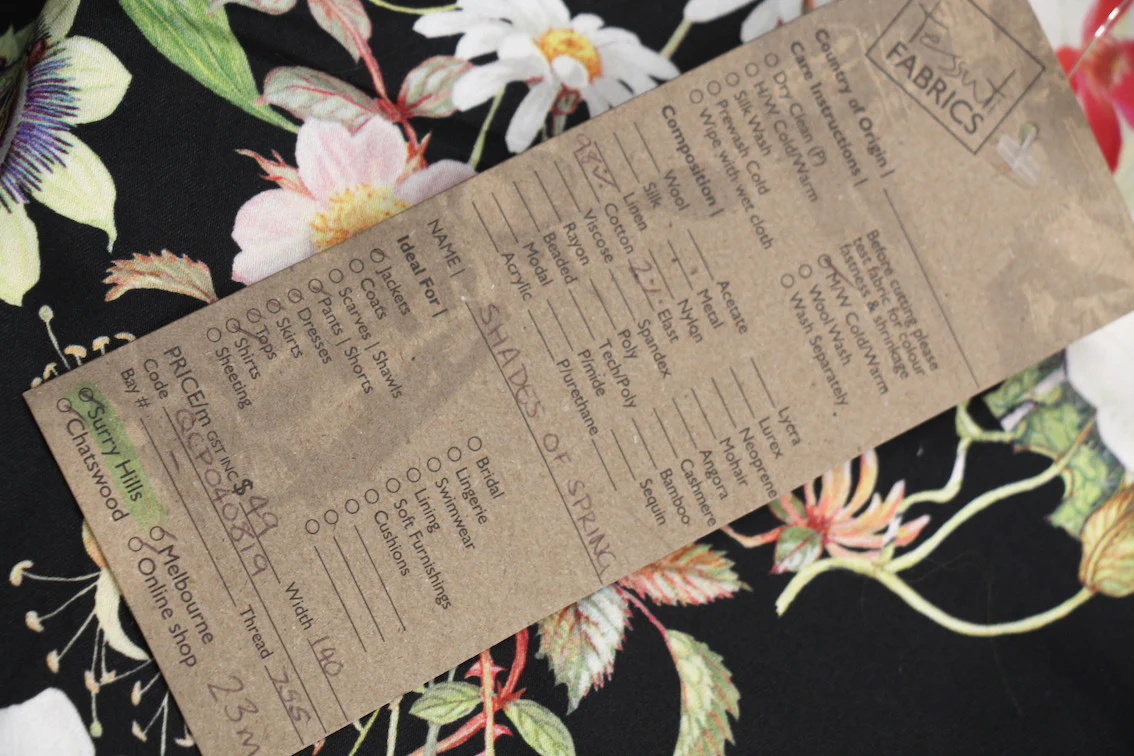 Tessuti
FABRICS
Country of Origin |
Care Instructions |
Dry Clean (P)
H/W Cold/Warm
Silk Wash
Prewash Cold
Wipe with wet cloth
Before cutting please
test fabric for colour
fastness & shrinkage
M/W Cold/Warm
Wool Wash
Wash Separately
Composition |
Wool
Silk
Linen
98% Cotton
Viscose
Rayon
Beaded
Modal
Acrylic
Acetate
Metal
Nylon
2% Elast
Spandex
Poly
Tech/Poly
P/mide
P/urethane
Lycra
Lurex
Neoprene
Mohair
Angora
Cashmere
Bamboo
Sequin
NAME | SHADES OF SPRING
Ideal For |
Jackets
Coats
Scarves | Shawls
Pants | Shorts
Dresses
Skirts
Tops
Shirts
Sheeting
Bridal
Lingerie
Swimwear
Lining
Soft Furnishings
Cushions
PRICE/m GST INC $ 49 Width 140
Code QCP040819 Thread 755
Bay # -
Surry Hills
Chatswood
Melbourne
Online shop
23m